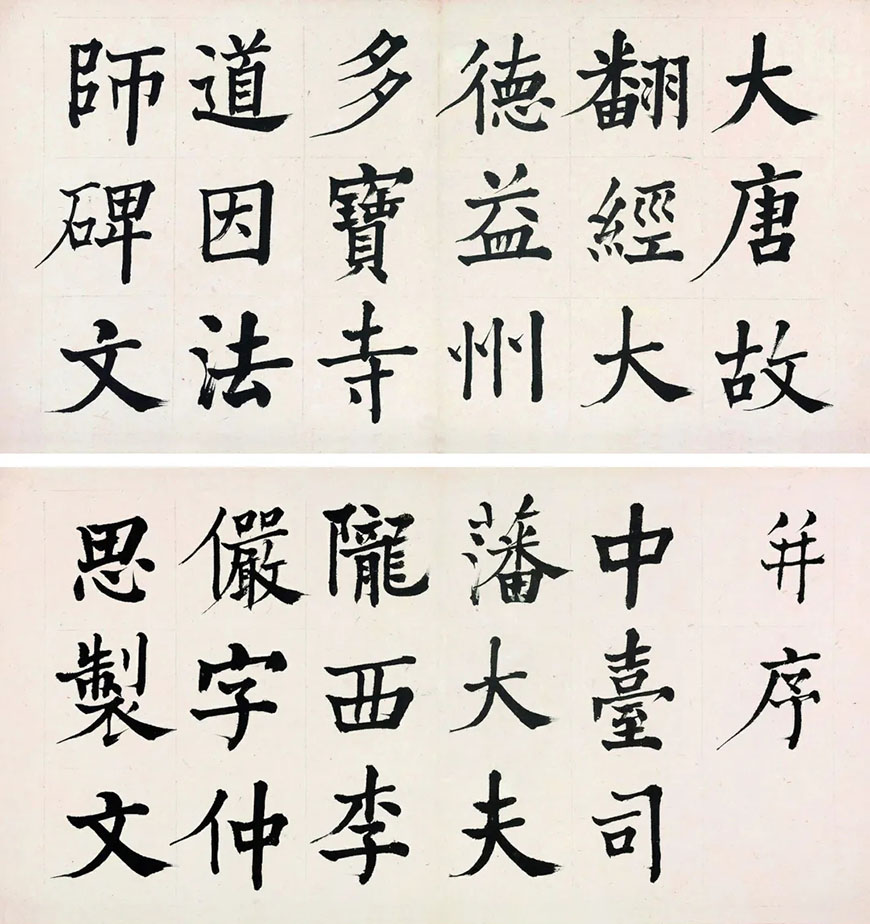 大唐故
翻經大
德益州
多寶寺
道因法
師碑文
并序
中臺司
藩大夫
隴西李
儼字仲
思製文